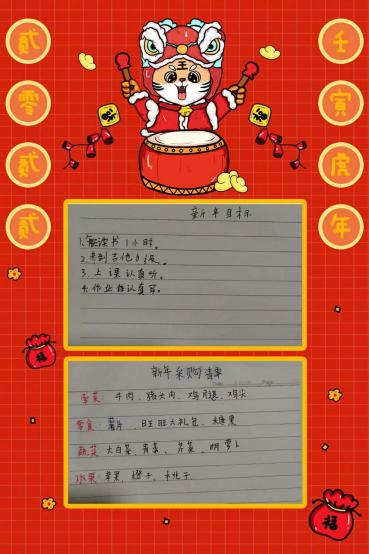 贰
零
贰
贰
壬
寅
虎
年
王
新年目标
1.每读书1小时。
2.考到吉他6级。
3.上课认真听。
4.作业认真写。
新年采购清单
荤菜:牛肉、猪头肉、鸡腿、鸡尖
零食:薯片、旺旺大礼包、糖果
蔬菜:大白菜、青菜、芹菜、胡萝卜
水果:苹果、橙子、桃子
福
福